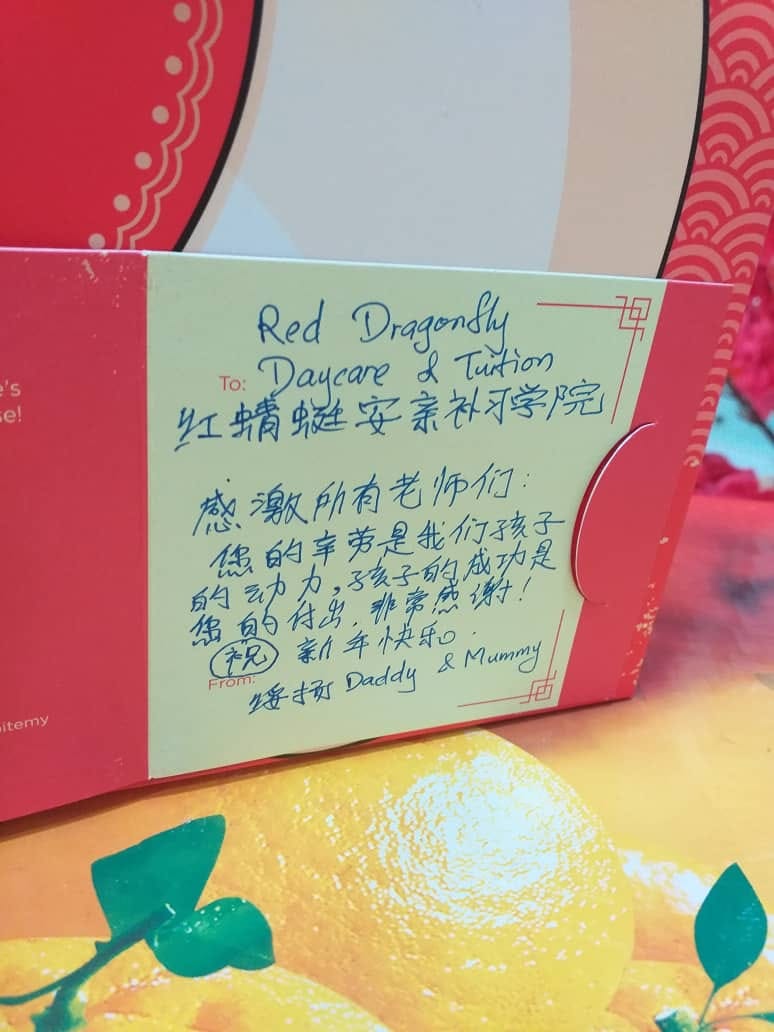 Red Dragonfly
To: Daycare & Tuition
红蜻蜓安亲补习学院
感激所有老师们:
您的辛劳是我们孩子
的动力,孩子的成功是
您的付出,非常感谢!
祝 新年快乐.
From:
扬 Daddy & Mummy
e's
se!
itemy